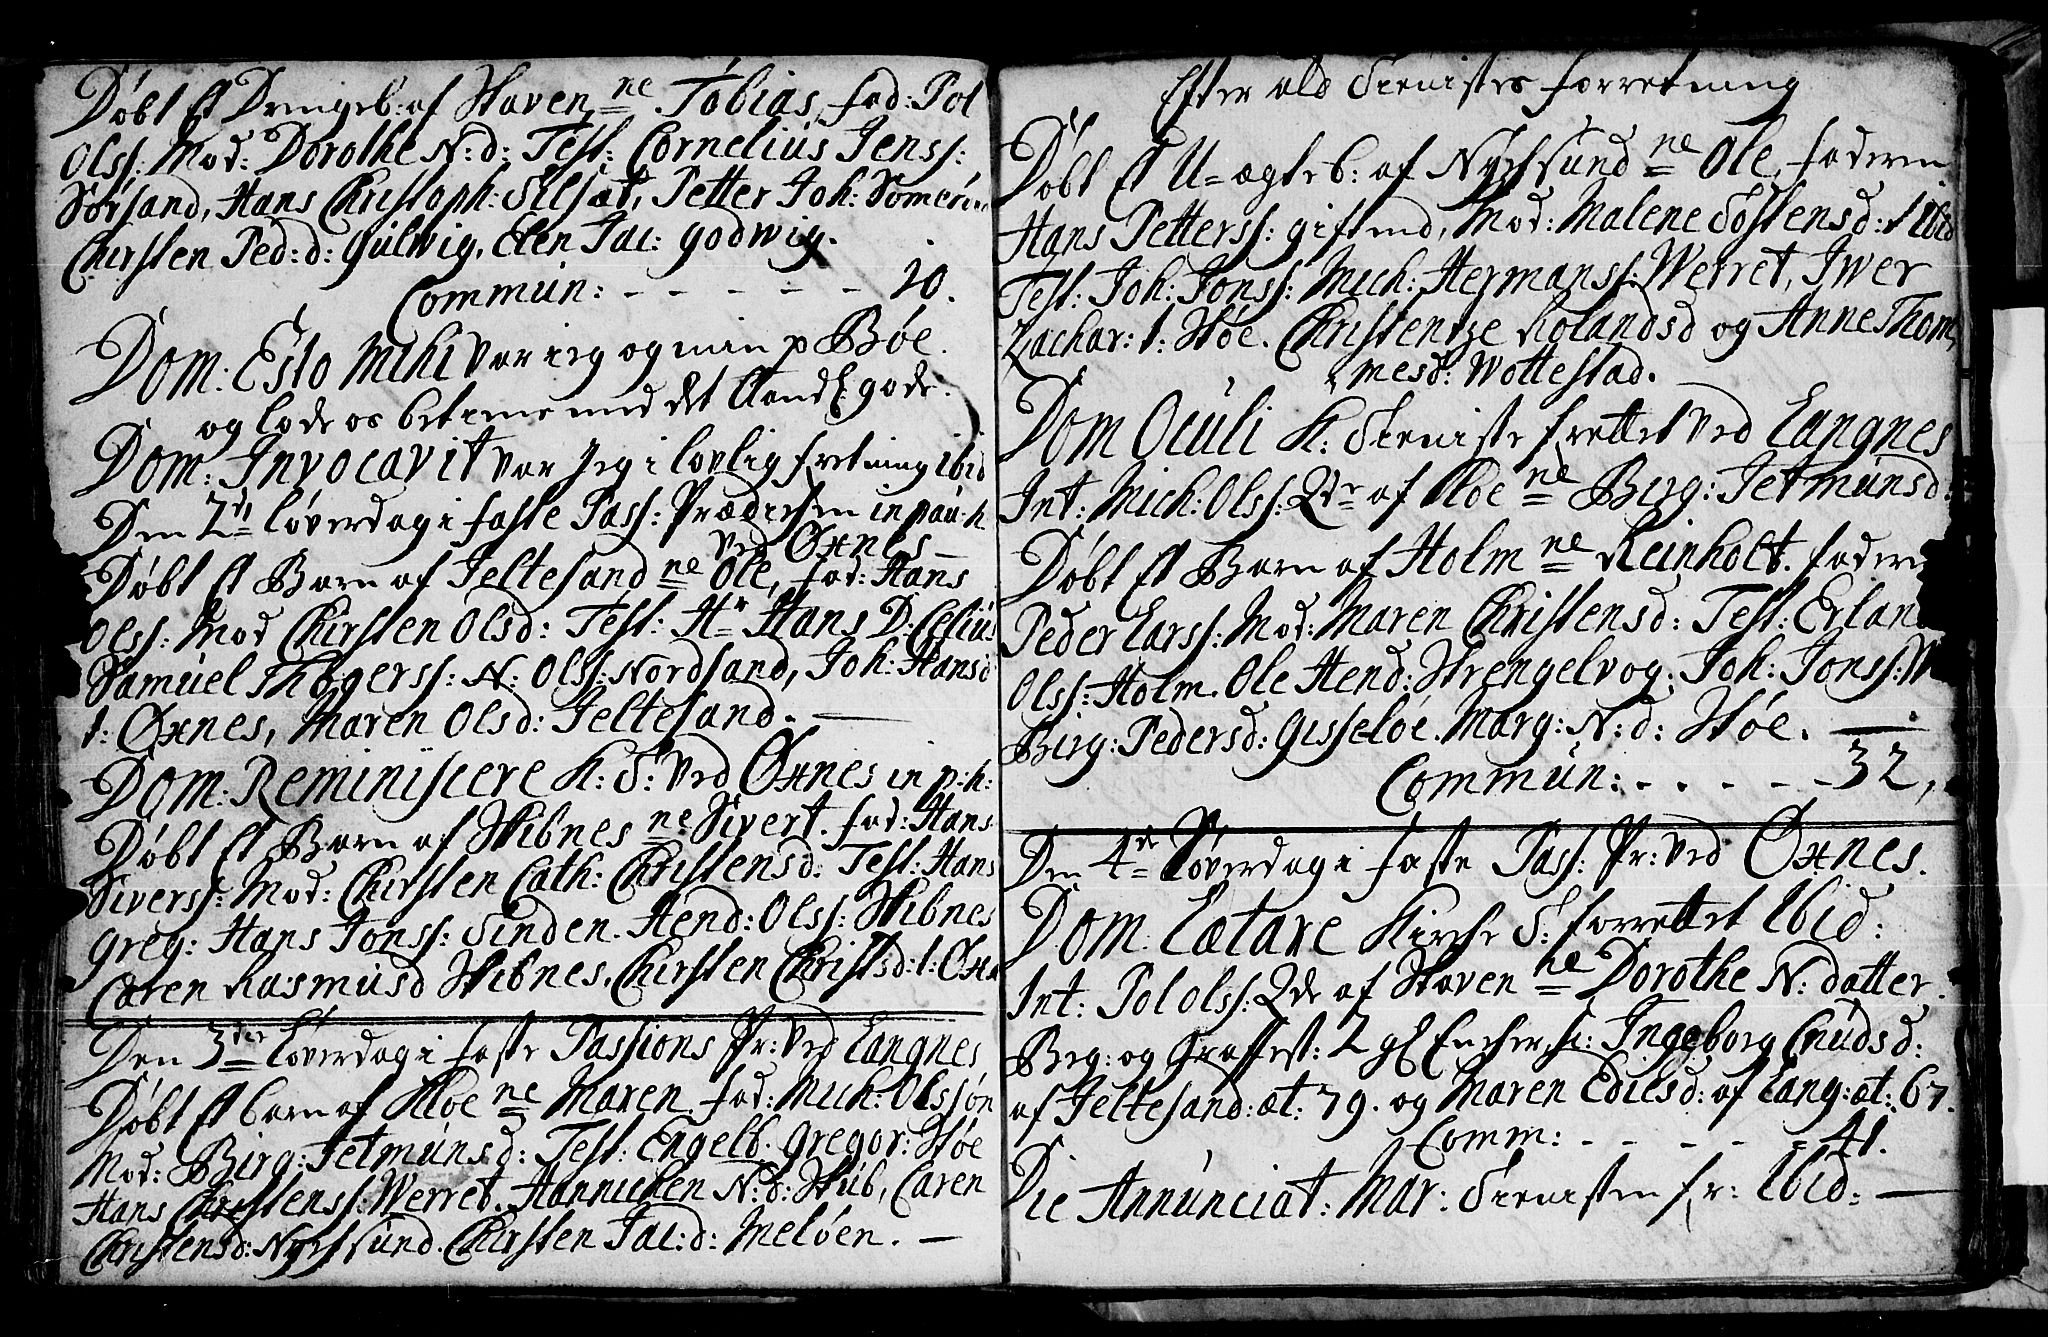 Døbt Et Drengeb: af Staven ne Tobias, fad: Pol
Olss: Mod: Dorothe N: d: Test: Cornelius Jenss:
Sørsand, Hans Christoph: Selsæt, Petter Joh: Somerøe
Chirsten Ped: d: Gulwig, Elen Jac: Godwig.
Commun: - - - - - 20.
Dom: Esto Mihi var ieg og min p Bøe.
og lode os betiene med det Aandl: gode.
Dom: Invocavit var Jeg i lovlig fretning ibid
Den 2den Løverdag i faste Pass: Prædichen in pau: h
ved Øxnes —
Døbt Et Barn af Jeltesand ne Ole, fad: Hans
Olss: Mod Chirsten Olsd: Test: Hr Hans D: Celius
Samuel Thøgerss: N: Olss: Nordsand, Joh: Hansd
t: Øxnes, Maren Olsd: Jeltesand. —
Dom: Reminiscere K: T: ved Øxnes in p: h:
Døbt Et Barn af Stibnes ne Sivert. fad: Hans
Siverss: Mod: Chirsten Cath: Christensd: Test: Hans
Greg: Hans Jonss: Tinden. Hend: Olss: Stibnes
Caren Rasmusd Stibnes, Chirsten Christsd: t: Øxn
Den 3die Løverdag i faste Passions Pr: ved Langnes
Døbt Et barn af Kloe ne Maren. fad: Mich: Olssøn
Mod: Birg: Jetmunsd: Test: Engelb. Gregor: Støe
Hans Christenss: Werret. Hannichen N: d: Stub, Caren
Christensd: Nychsund. Chirsten Jac: d: Meløen. —
Efter old Tienistes forretning
Døbt Et U=ægte b: af Nychsund ne Ole, faderen
Hans Petterss: gift md, Mod: Malene Tostensd: t ibid
Test: Joh: Jonss: Mich: Hermanss: Werret, Iwer
Zachar: t: Støe. Christentze Rolandsd og Anne Thom
mesd: Wottestad.
Dom Oculi K: Tieniste frettet ved Langnes
Int: Mich: Olss: Qde af Kloe ne Birg: Jetmunsd:
Døbt Et Barn af Holm ne Reinholt. faderen
Peder Larss: Mod: Maren Christensd: Test: Erlan
Olss: Holm. Ole Hend: Strengelvog: Joh: Jonss: W
Birg: Pedersd: Gisseløe. Marg: N: d: Støe. —
Commun: - - - - - 32,
Den 4de Løverdag i faste Pass: Pr: ved Øxnes.
Dom. Lætare Kirche T: forrettet Ibid:
Int: Pol Olss: Qde af Staven ne Dorothe N: datter.
Beg: og Graffest: 2 gl Encher, n: Ingeborg Cnudsd:
af Jeltesand: æt: 79. og Maren Edisd: af Lang: æt: 67.
Comm: - - - - - 41.
Die Annunciat: Mar: Tienisten fr: Ibid: —